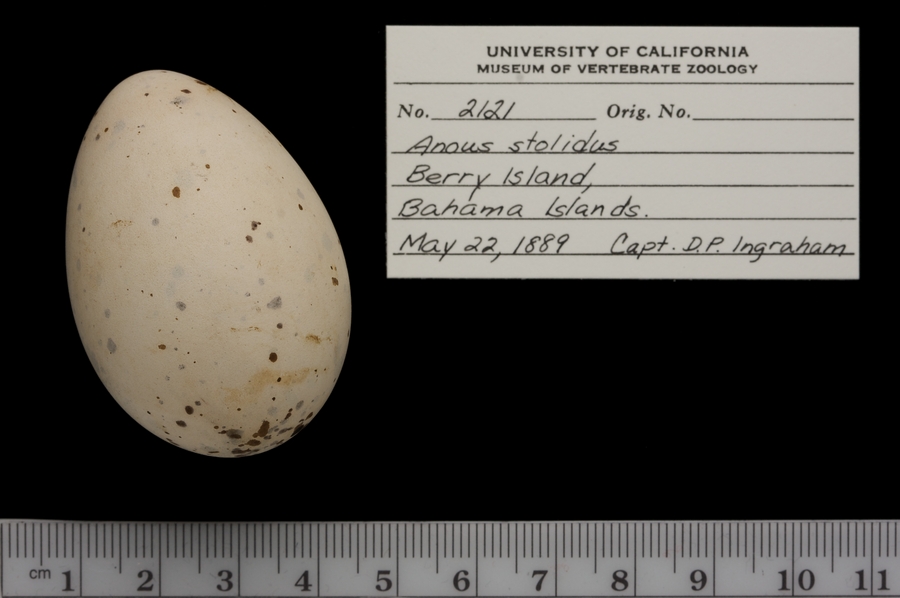 UNIVERSITY OF CALIFORNIA
MUSEUM OF VERTEBRATE ZOOLOGY
No. 2121 Orig. No.
Anous stolidus
Berry Island,
Bahama Islands.
May 22, 1889 Capt. D.P. Ingraham
cm 1 2 3 4 5 6 7 8 9 10 11